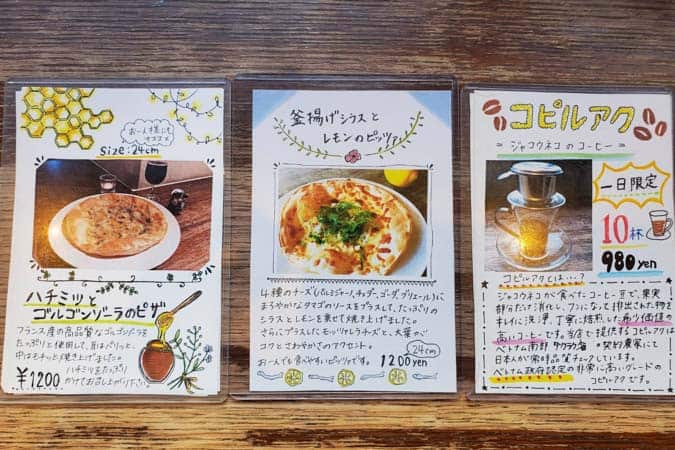 お一人様にも
オススメ
Size:24cm
ハチミツと
ゴルゴンゾーラのピザ
フランス産の高品質なゴルゴンゾーラを
たっぷりと使用して、耳はパリッと、
中はモチッと焼き上げました。
ハチミツをたっぷり
かけてお召し上がり下さい。
¥1200
釜揚げシラスと
レモンのピッツァ
4種のチーズ(パルミジャーノ、チェダー、ゴーダ、ブリエール)に
まろやかなタマゴのソースをプラスして、たっぷりの
シラスとレモンを乗せて焼き上げました。
さらにプラスしたモッツァレラチーズと、大葉が
コクとさわやかさのアクセント。
お一人でも食べやすいピッツァです。
24cm
1200yen
コピルアク
ジャコウネコのコーヒー
一日限定
10杯
980yen
コピルアクとは…?
ジャコウネコが食べたコーヒー豆で、果実
部分だけ消化し、フンになって排出された物を
キレイに洗浄、丁寧に焙煎した希少価値の
高いコーヒーです。当店で提供するコピルアクは
ベトナム南部
契約農家にて
日本人が常時品質チェックしています。
ベトナム政府認定の非常に高いグレードの
コピルアクです。